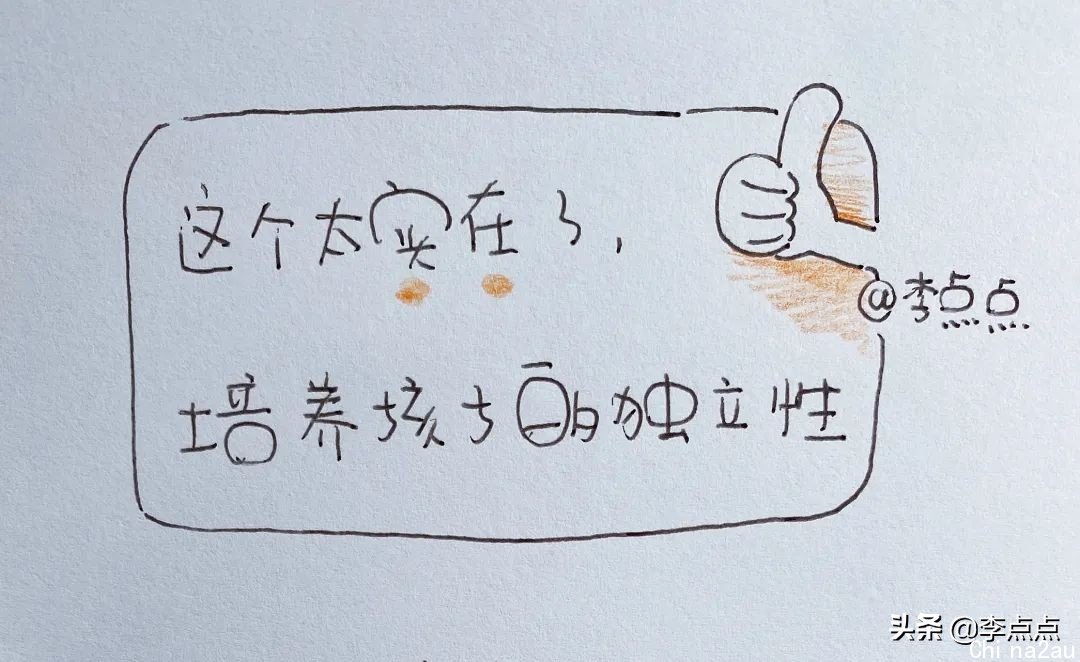 这个太实在了，
@李点点
培养孩子的独立性
头条 @李点点
Chi na2au